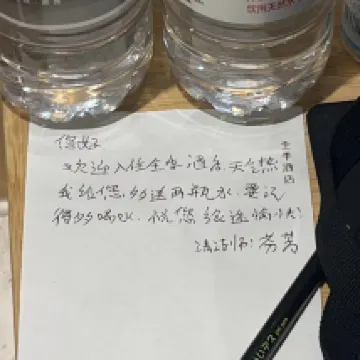 饮用天然水
您好
欢迎入住全季酒店,天气热
我给您多送两瓶水,要记
得多喝水,祝您旅途愉快!
清洁师:芬芳
全季酒店